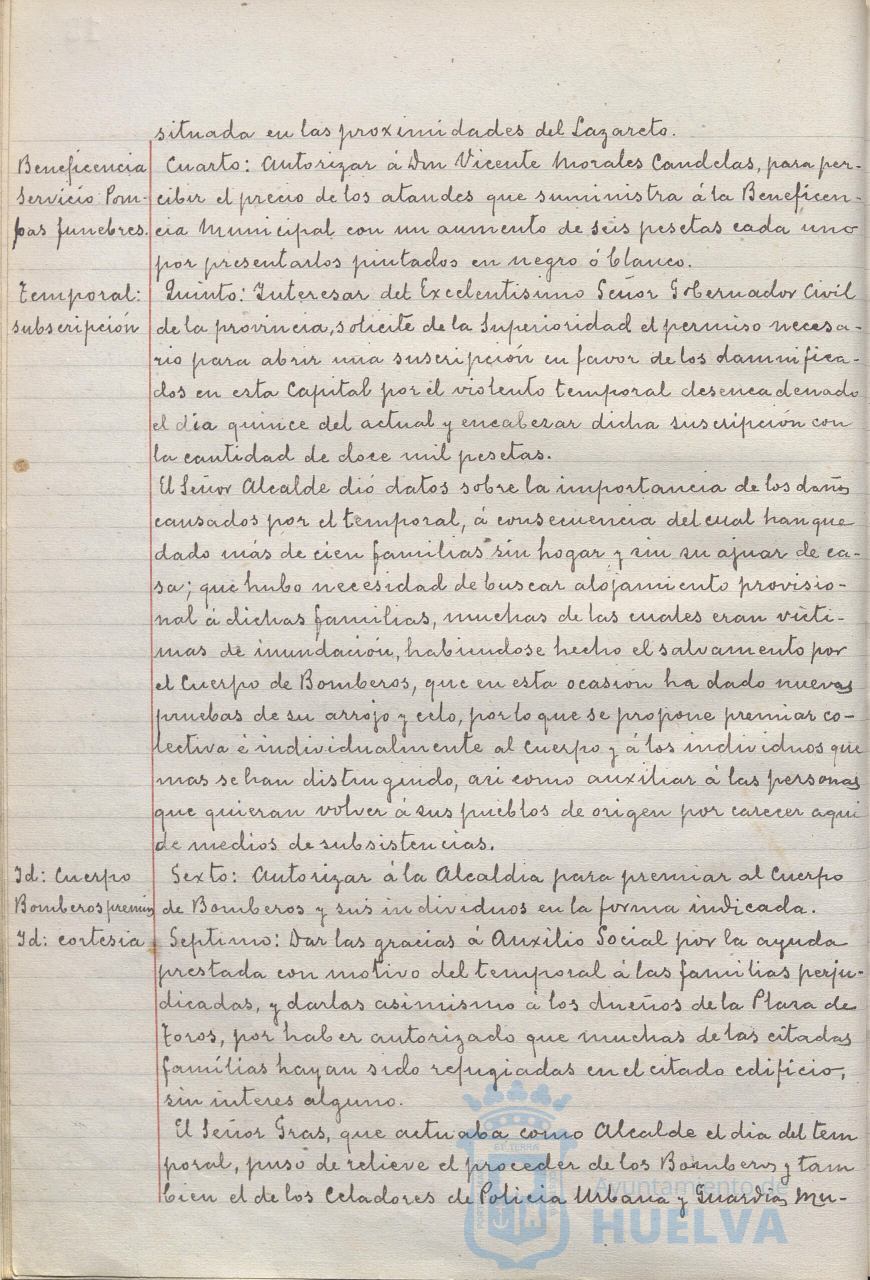 situada en las proximidades del Lazareto.
Beneficencia
Servicio Pom-
pas funebres.
Cuarto: Autorizar á Don Vicente Morales Candelas, para per-
cibir el precio de los ataudes que suministra á la Beneficen-
cia Municipal con un aumento de seis pesetas cada uno
por presentarlos pintados en negro ó blanco.
Temporal:
subscripción
Quinto: Interesar del Excelentisimo Señor Gobernador Civil
de la provincia, solicite de la Superioridad el permiso necesa-
rio para abrir una suscripción en favor de los damnifica-
dos en esta Capital por el violento temporal desencadenado
el día quince del actual y encabezar dicha suscripción con
la cantidad de doce mil pesetas.
El Señor Alcalde dió datos sobre la importancia de los daños
causados por el temporal, á consecuencia del cual han que
dado más de cien familias sin hogar y sin su ajuar de ca-
sa; que hubo necesidad de buscar alojamiento provisio-
nal á dichas familias, muchas de las cuales eran victi-
mas de inundación, habiendose hecho el salvamento por
el Cuerpo de Bomberos, que en esta ocasión ha dado nuevas
pruebas de su arrojo y celo, por lo que se propone premiar co-
lectiva é individualmente al Cuerpo y á los individuos que
mas se han distinguido, asi como auxiliar á las personas
que quieran volver á sus pueblos de origen por carecer aqui
de medios de subsistencias.
Id: Cuerpo
Bomberos premio
Sexto: Autorizar á la Alcaldia para premiar al Cuerpo
de Bomberos y sus individuos en la forma indicada.
Id: cortesia
Septimo: Dar las gracias á Auxilio Social por la ayuda
prestada con motivo del temporal á las familias perju-
dicadas, y darlas asimismo á los dueños de la Plaza de
Toros, por haber autorizado que muchas de las citadas
familias hayan sido refugiadas en el citado edificio,
sin interes alguno.
El Señor Gras, que actuaba como Alcalde el dia del tem
poral, puso de relieve el proceder de los Bomberos y tam
bien el de los Celadores de Policia Urbana y Guardias Mu-
Ayuntamiento de
HUELVA